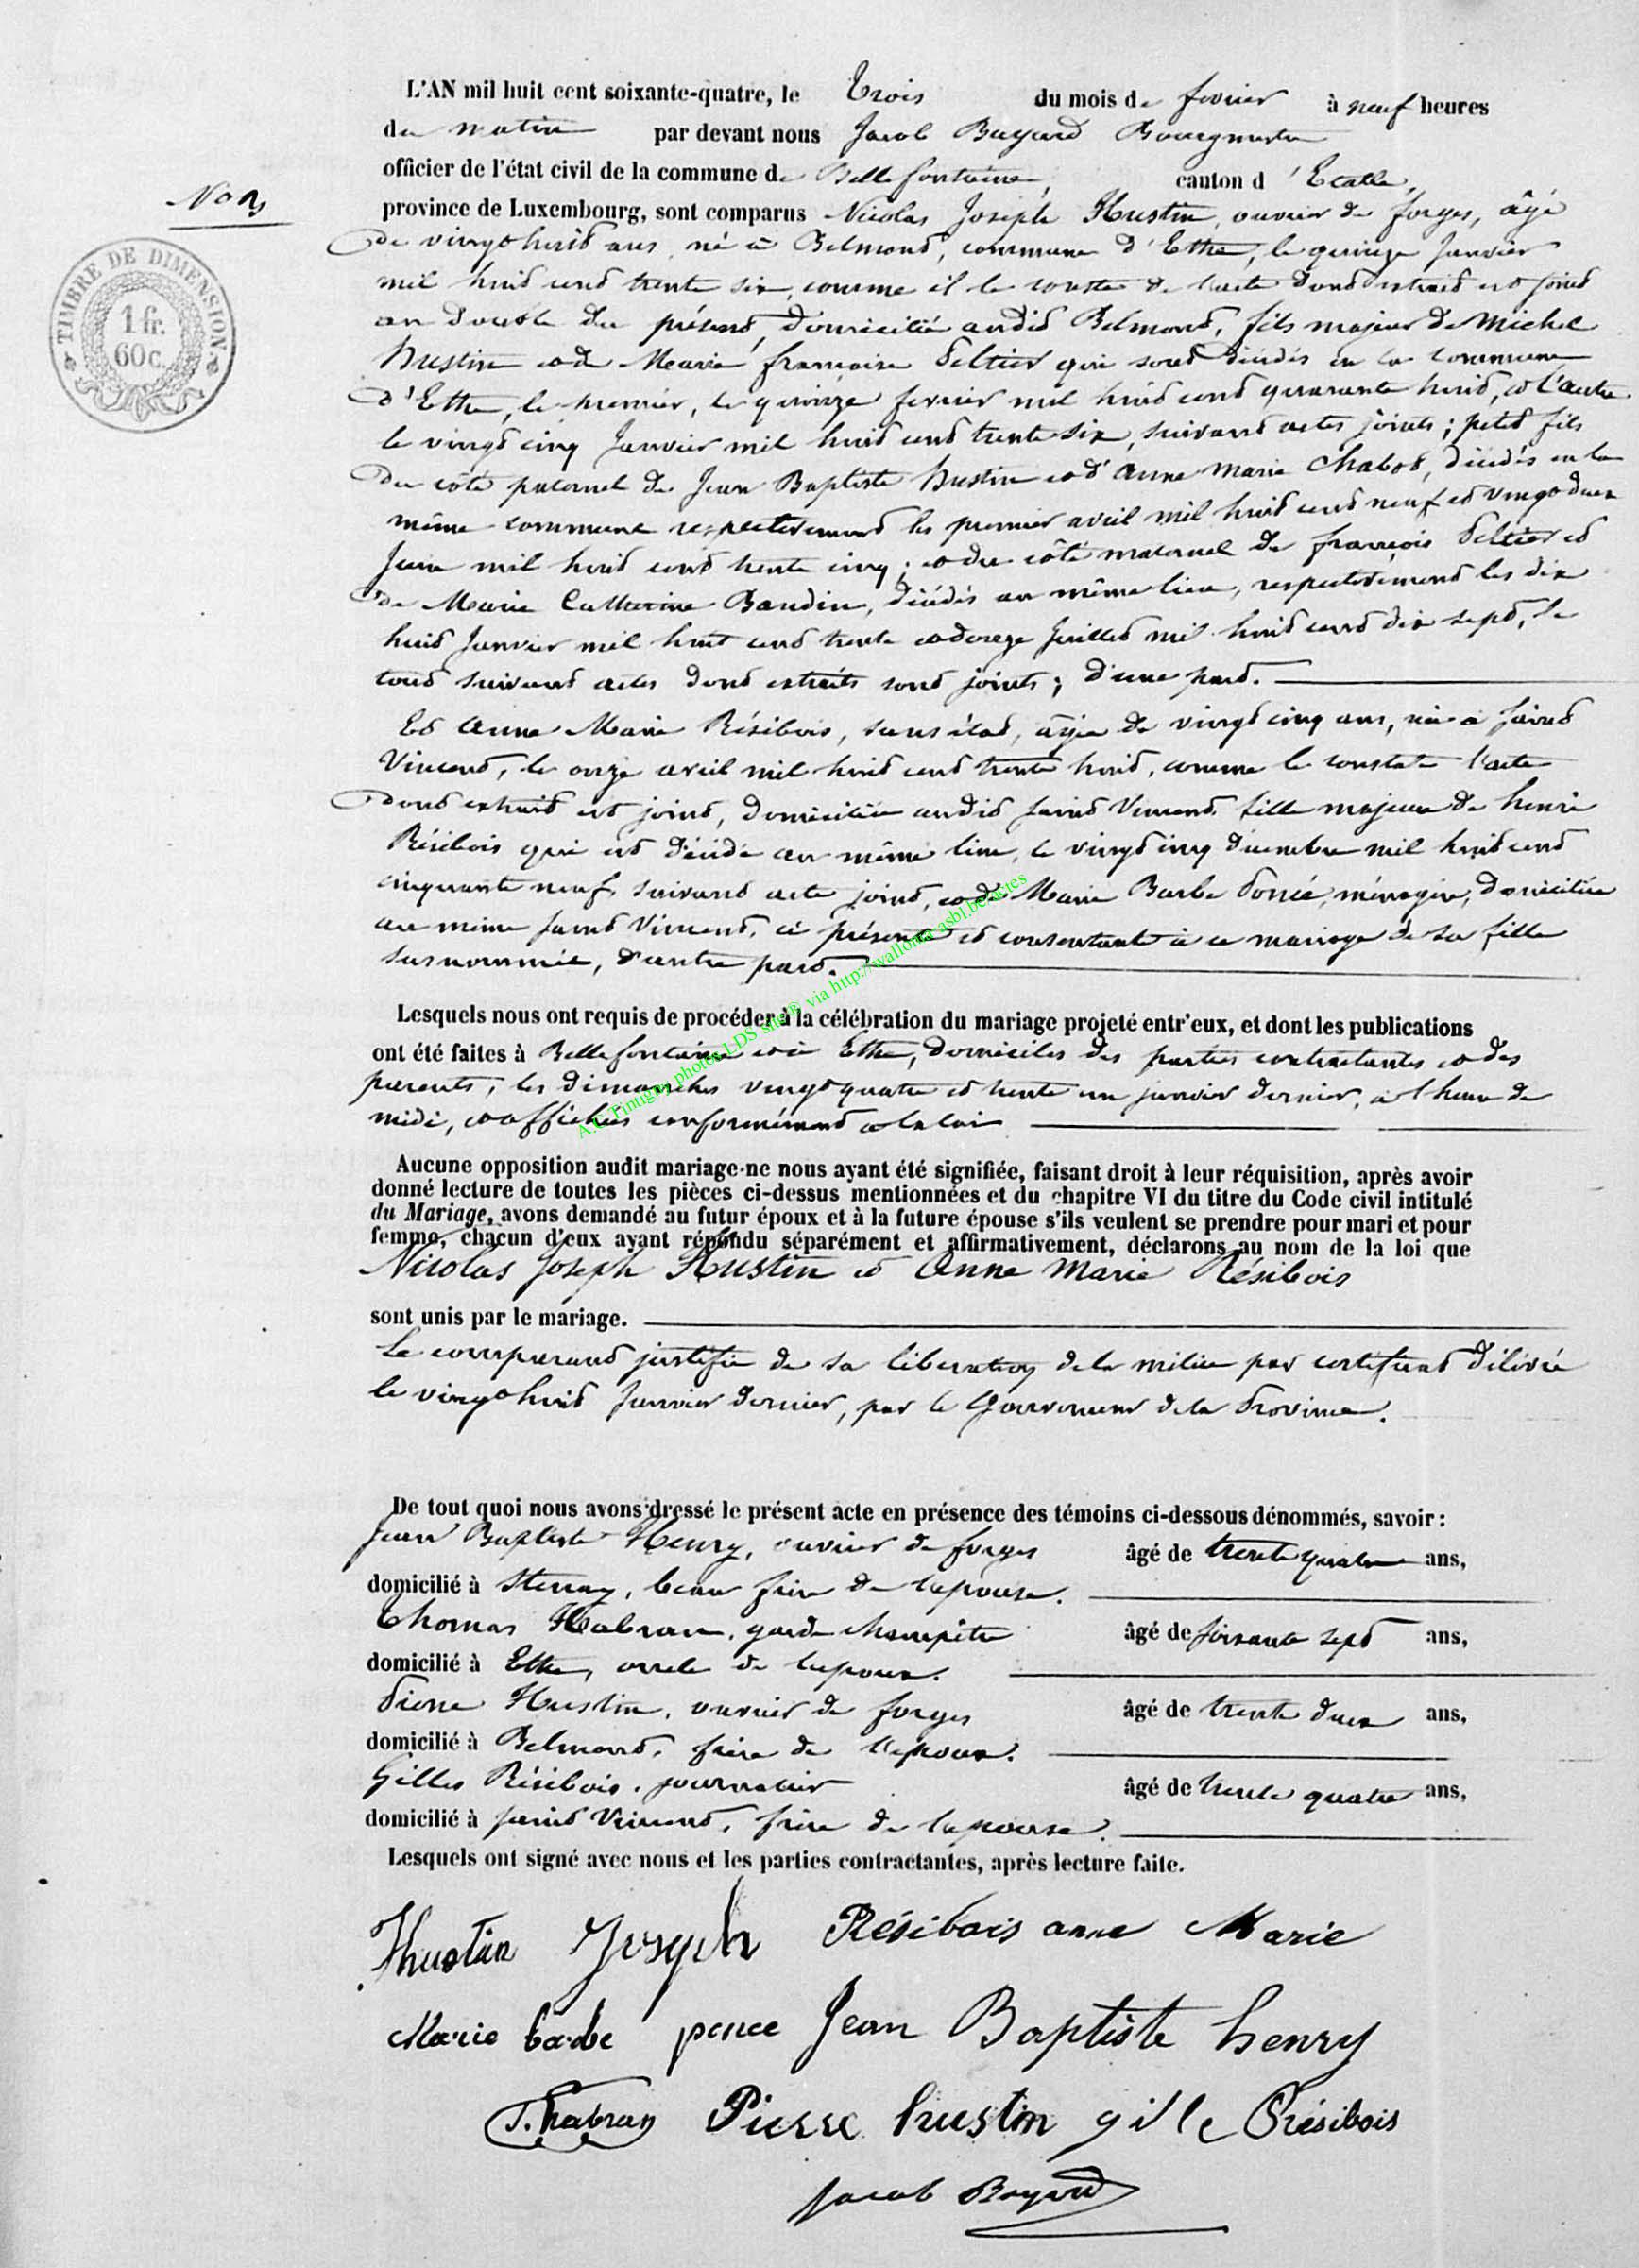 L'AN mil huit cent soixante-quatre, le Trois du mois de fevrier à neuf heures
du matin par devant nous Jacob Bayard Bourgmestre
officier de l'état civil de la commune de Bellefontaine, canton d'Etalle,
province de Luxembourg, sont comparus Nicolas Joseph Hustin, ouvrier de forges, âgé
de vingt huit ans, né à Belmont, commune d'Ethe, le quinze Janvier
mil huit cent trente six, comme il le conste de l'acte dont extrait est joint
au double du présent, domicilié audit Belmont, fils majeur de Michel
Hustin et de Marie françoise Peltier qui sont décédés en la commune
d'Ethe, le premier, le quinze fevrier mil huit cent quarante huit, et l'autre
le vingt cinq Janvier mil huit cent trente six, suivant actes joints; petit fils
du côté paternel de Jean Baptiste Hustin et d'anne Marie Chabot, décédés en la
même commune respectivement les premier avril mil huit cent neuf et vingt deux
Juin mil huit cent trente cinq; et du côté maternel de françois Peltier et
de Marie Catherine Baudin, décédés au même lieu, respectivement les dix
huit Janvier mil huit cent trente et douze Juillet mil huit cent dix sept, le
tout suivant actes dont extraits sont joints; d'une part.
Et Anne Marie Résibois, sans état, âgée de vingt cinq ans, née à Saint
Vincent, le onze avril mil huit cent trente huit, comme le constate l'acte
dont extrait est joint, domiciliée audit Saint Vincent, fille majeure de henri
Résibois qui est décédé au même lieu, le vingt cinq décembre mil huit cent
cinquante neuf, suivant acte joint, et de Marie Barbe Poncé, ménagère, domiciliée
au même Saint Vincent, ci présente et consentante à ce mariage de sa fille
susnommée, d'autre part.
Lesquels nous ont requis de procéder à la célébration du mariage projeté entr'eux, et dont les publications
ont été faites à Bellefontaine et à Ethe, domiciles des parties contractantes et des
parents, les dimanches vingt quatre et trente un janvier dernier, à l'heure de
midi, et affichées conformément à la loi
Aucune opposition audit mariage ne nous ayant été signifiée, faisant droit à leur réquisition, après avoir
donné lecture de toutes les pièces ci-dessus mentionnées et du chapitre VI du titre du Code civil intitulé
du Mariage, avons demandé au futur époux et à la future épouse s'ils veulent se prendre pour mari et pour
femme, chacun d'eux ayant répondu séparément et affirmativement, déclarons au nom de la loi que
Nicolas Joseph Hustin et Anne Marie Résibois
sont unis par le mariage.
Le comparant justifie de sa libération de la milice par certificat délivré
le vingt huit Janvier dernier, par le Gouverneur de la Province.
De tout quoi nous avons dressé le présent acte en présence des témoins ci-dessous dénommés, savoir:
Jean Baptiste Henry, ouvrier de forges âgé de trente quatre ans,
domicilié à Stenay, beau frère de l'epouse.
Thomas Habran, garde champêtre âgé de soixante sept ans,
domicilié à Ethe, oncle de l'epoux.
Pierre Hustin, ouvrier de forges âgé de trente deux ans,
domicilié à Belmont, frère de l'epoux.
Gilles Résibois, journalier âgé de trente quatre ans,
domicilié à Saint Vincent, frère de l'epouse.
Lesquels ont signé avec nous et les parties contractantes, après lecture faite.
hustin Joseph Résibois anne Marie
Marie barbe ponce Jean Baptiste henry
T. habran Pierre hustin gille Résibois
Jacob Bayard
TIMBRE DE DIMENSION
1 fr.
60c.